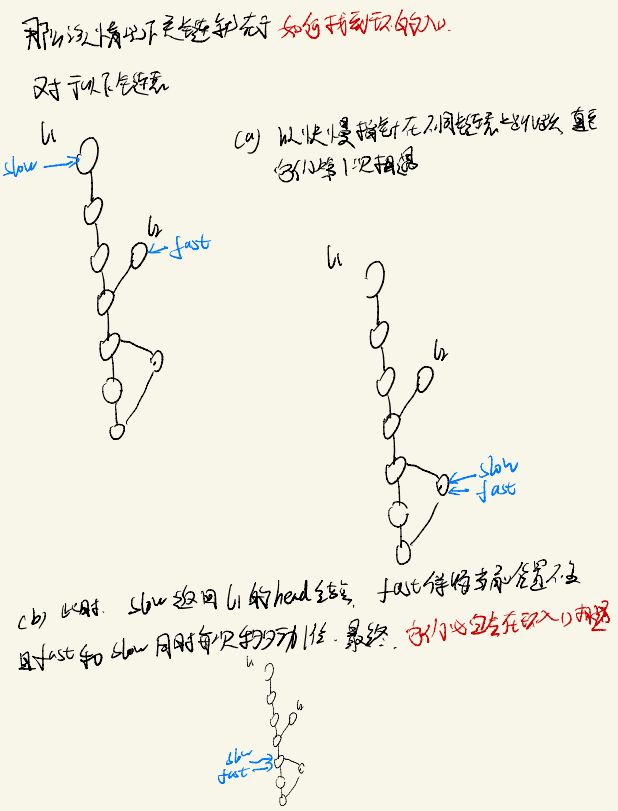 那么该情况下关键就在于 如何找到环的入口.
对于以下链表
l1
slow
l2
fast
(a) 以快慢指针在不同链表上出发 直至
它们第1次相遇
l1
l2
slow
fast
(b) 此时. slow 返回 l1 的 head 结点, fast 保持当前位置不变
且 fast 和 slow 同时每次移动1位. 最终, 它们必定会在环入口相遇
l1
l2
slow
fast